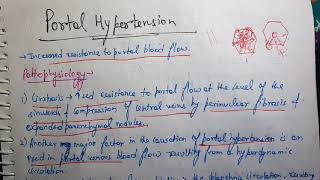 Portal Hypertension
→ Increased resistance to portal blood flow.
Pathophysiology→
1) Cirrhosis → ↑sed resistance to portal flow at the level of the
sinusoids & compression of central veins by perinuclear fibrosis &
expanded parenchymal nodules.
2) Another major factor in the causation of portal hypertension is an
↑sed in portal venous blood flow resulting from a hyperdynamic
circulation.
in the splanchnic circulation, resulting